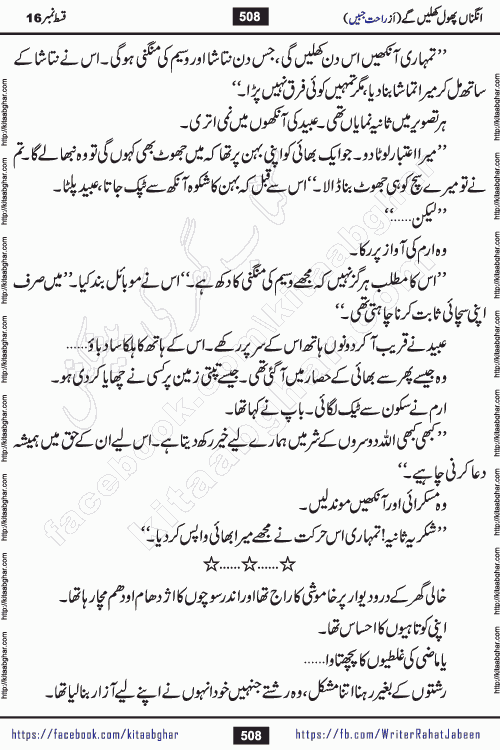 قسط نمبر 16
508
انگناں پھول کھلیں گے (از راحت جبیں)
’’تمہاری آنکھیں اس دن کھلیں گی، جس دن نتاشا اور وسیم کی منگنی ہو گی۔ اس نے نتاشا کے
ساتھ مل کر میرا تماشا بنا دیا، مگر تمہیں کوئی فرق نہیں پڑا۔‘‘
ہر تصویر میں ثانیہ نمایاں تھی۔ عبید کی آنکھوں میں نمی اتری۔
’’میرا اعتبار لوٹا دو۔ جو ایک بھائی کو اپنی بہن پر تھا کہ میں جھوٹ بھی کہوں گی تو وہ نبھا لے گا۔ تم
نے تو میرے سچ کو ہی جھوٹ بنا ڈالا۔‘‘ اس سے قبل کہ بہن کا شکوہ آنکھ سے ٹپک جاتا، عبید پلٹا۔
’’لیکن......‘‘
وہ ارم کی آواز پر رکا۔
’’اس کا مطلب ہرگز نہیں کہ مجھے وسیم کی منگنی کا دکھ ہے۔‘‘ اس نے موبائل بند کیا۔ ’’میں صرف
اپنی سچائی ثابت کرنا چاہتی تھی۔‘‘
عبید نے قریب آ کر دونوں ہاتھ اس کے سر پر رکھے۔ اس کے ہاتھ کا ہلکا سا دباؤ......
وہ جیسے پھر سے بھائی کے حصار میں آ گئی تھی۔ جیسے تپتی زمین پر کسی نے چھایا کر دی ہو۔
ارم نے سکون سے ٹیک لگائی۔ باپ نے کہا تھا۔
’’کبھی کبھی اللہ دوسروں کے شر میں ہمارے لیے خیر رکھ دیتا ہے۔ اس لیے ان کے حق میں ہمیشہ
دعا کرنی چاہیے۔‘‘
وہ مسکرائی اور آنکھیں موند لیں۔
’’شکریہ ثانیہ! تمہاری اس حرکت نے مجھے میرا بھائی واپس کر دیا۔‘‘
☆......☆......☆
خالی گھر کے در و دیوار پر خاموشی کا راج تھا اور اندر سوچوں کا اژدھام اودھم مچا رہا تھا۔
اپنی کوتاہیوں کا احساس تھا۔
یا ماضی کی غلطیوں کا پچھتاوا......
رشتوں کے بغیر رہنا اتنا مشکل، وہ رشتے جنہیں خود انہوں نے اپنے لیے آزار بنا لیا تھا۔
http://kitaabghar.com
http://kitaabghar.com
کتاب گھر کی پیشکش
facebook.com/kitaabghar
kitaabghar.com
https://facebook.com/kitaabghar
508
https://fb.com/WriterRahatJabeen